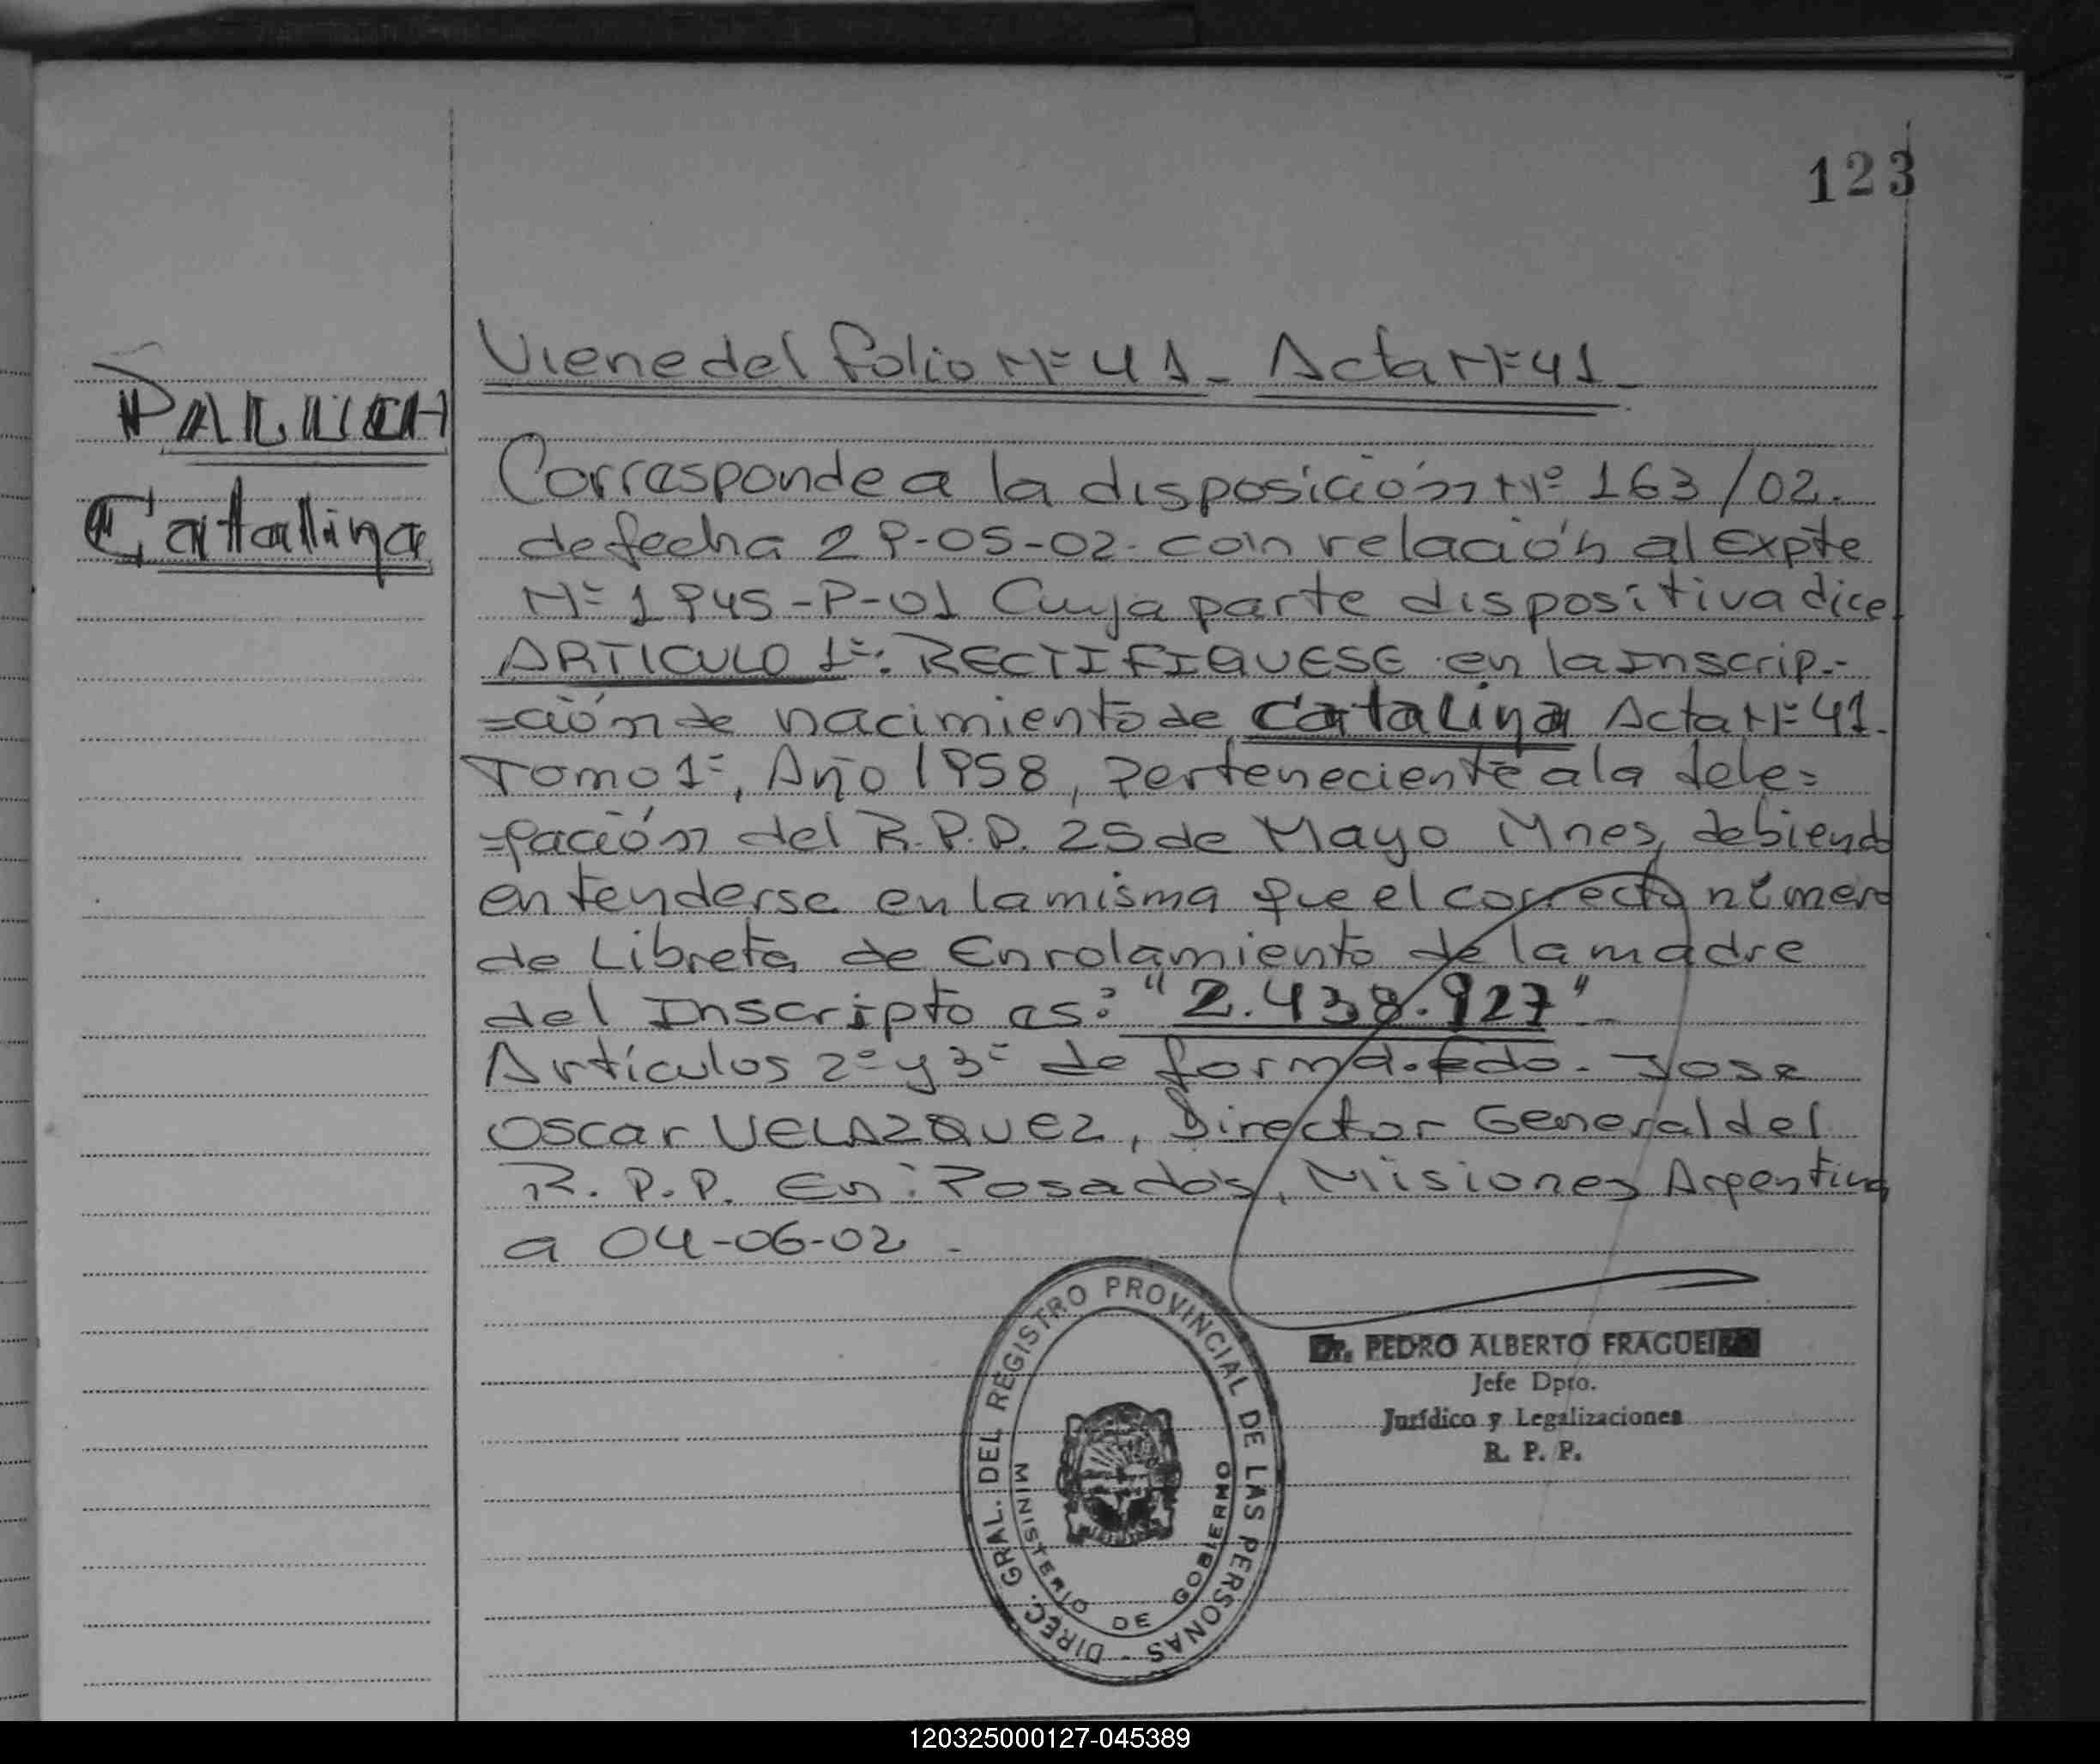 123
Viene del folio Nº 41 - Acta Nº 41 -
Catalina
Corresponde a la disposición Nº 163/02.
de fecha 29-05-02. con relación al Expte
Nº 1945-P-01 Cuya parte dispositiva dice.
ARTICULO 1º: RECTIFIQUESE en la Inscrip.-
=ción de nacimiento de Catalina Acta Nº 41.
Tomo 1º, Año 1958, Perteneciente a la dele=
=gación del R.P.P. 25 de Mayo Mnes, debiendo
entenderse en la misma que el correcto número
de Libreta de Enrolamiento de la madre
del Inscripto es: "2.438.927"-
Artículos 2º y 3º de forma. Fdo. Jose
Oscar VELAZQUEZ, Director General del
R.P.P. En: Posadas, Misiones Argentina
a 04-06-02 -
DIREC. GRAL. DEL REGISTRO PROVINCIAL DE LAS PERSONAS -
MINISTERIO DE GOBIERNO
Dr. PEDRO ALBERTO FRAGUEIRO
Jefe Dpto.
Jurídico y Legalizaciones
R. P. P.
120325000127-045389